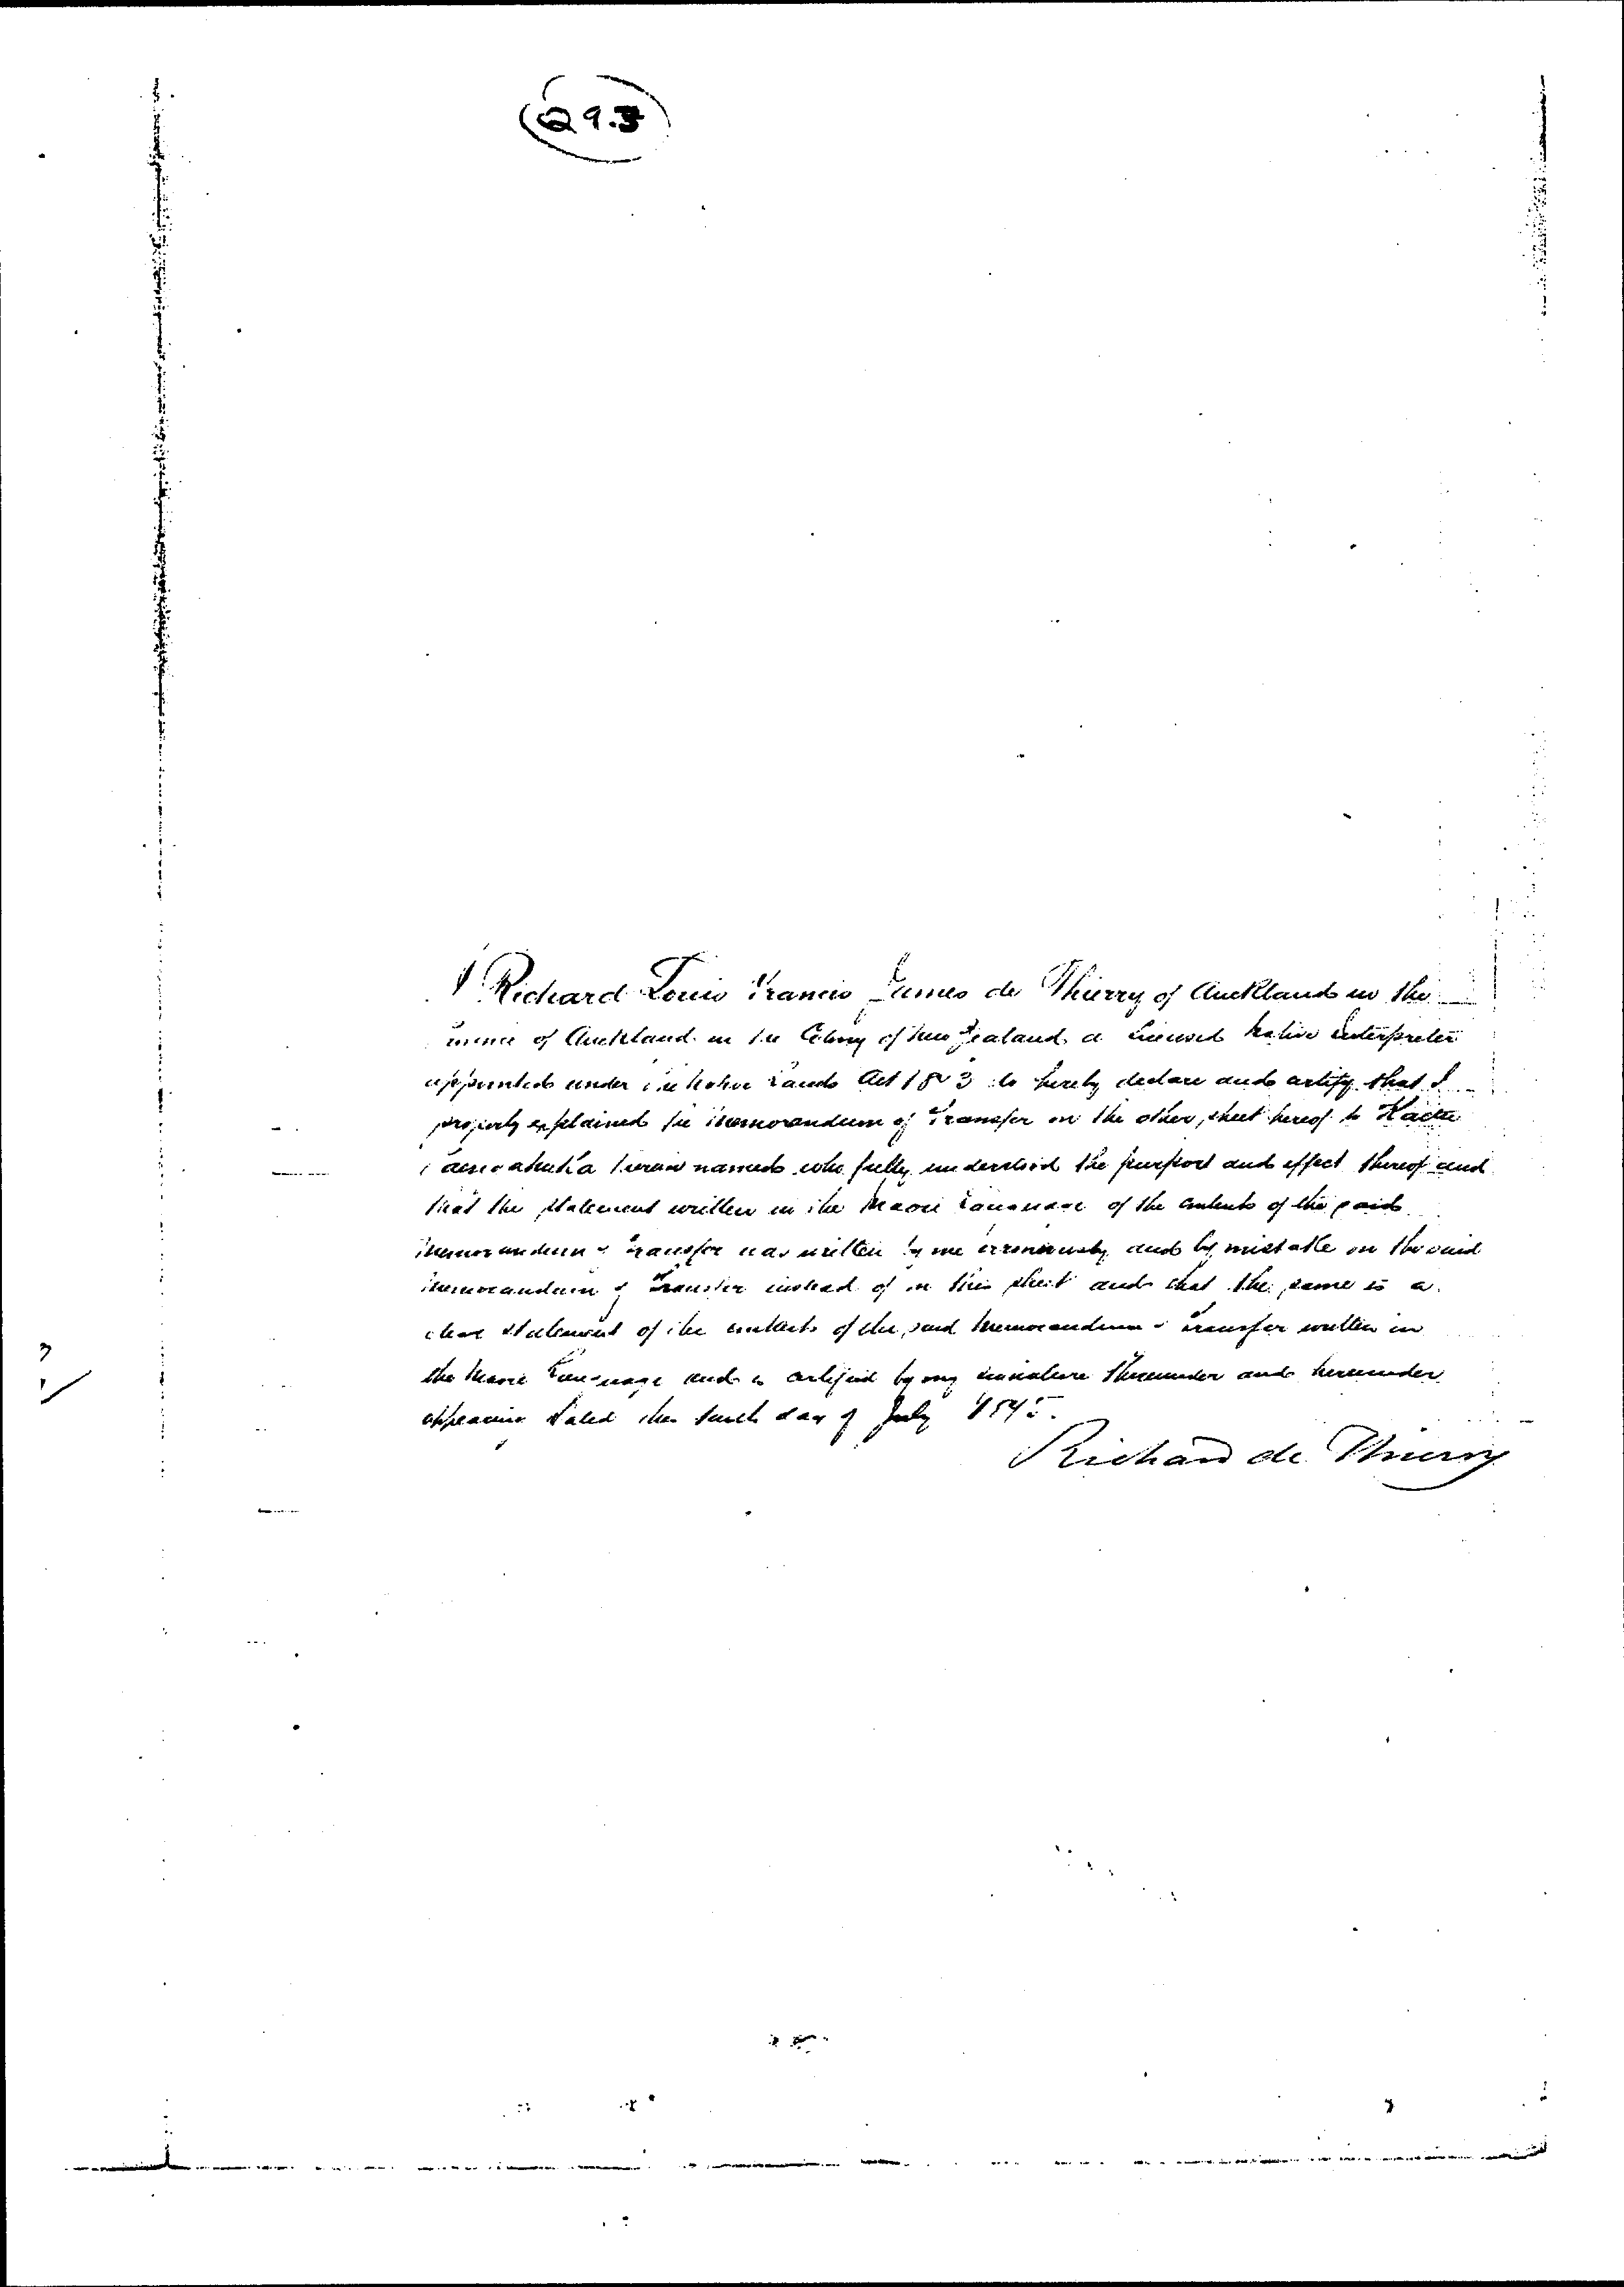 Q9.3
I Richard Louis Francis James de Thierry of Auckland in the
of Auckland in the Colony of New Zealand a Licensed Native Interpreter
appointed under the Native Lands Act 18 3 do hereby declare and certify that I
properly explained the Memorandum of Transfer on the other sheet hereof to
herein named who fully understood the purport and effect thereof and
that the statement written in the Maori Language of the contents of the said
Memorandum of Transfer was written by me erroneously and by mistake on the said
Memorandum of Transfer instead of on this sheet and that the same is a
clear statement of the contents of the said Memorandum of Transfer written in
the Maori Language and is certified by my signature thereunder and hereunder
appearing Dated this day of July
Richard de Thierry